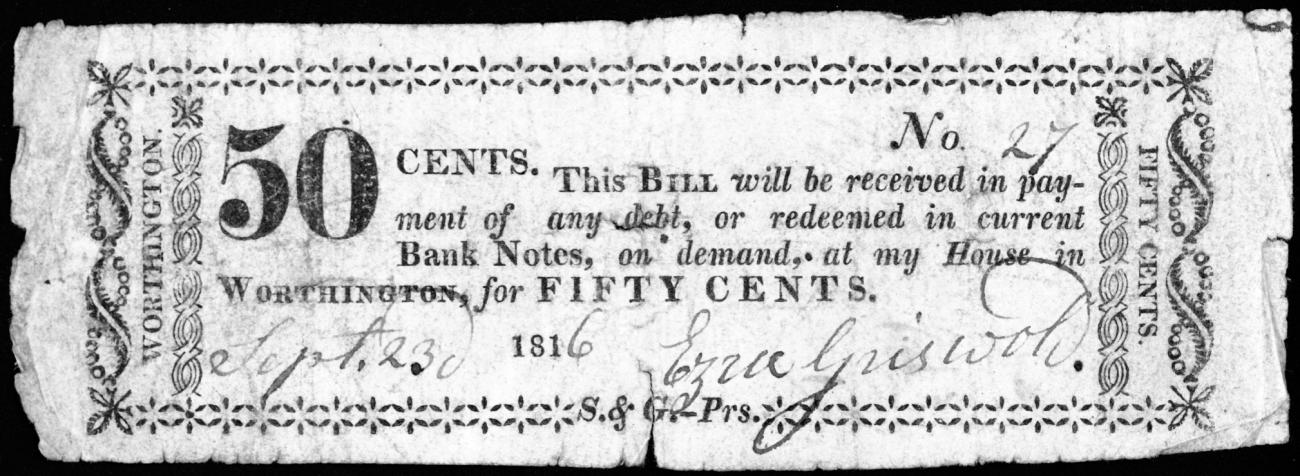 WORTHINGTON.
No. 27
50 CENTS. This BILL will be received in pay-
ment of any debt, or redeemed in current
Bank Notes, on demand, at my House in
WORTHINGTON, for FIFTY CENTS.
Sept. 23d 1816 Ezra Griswold.
S. & G.-Prs.
FIFTY CENTS.